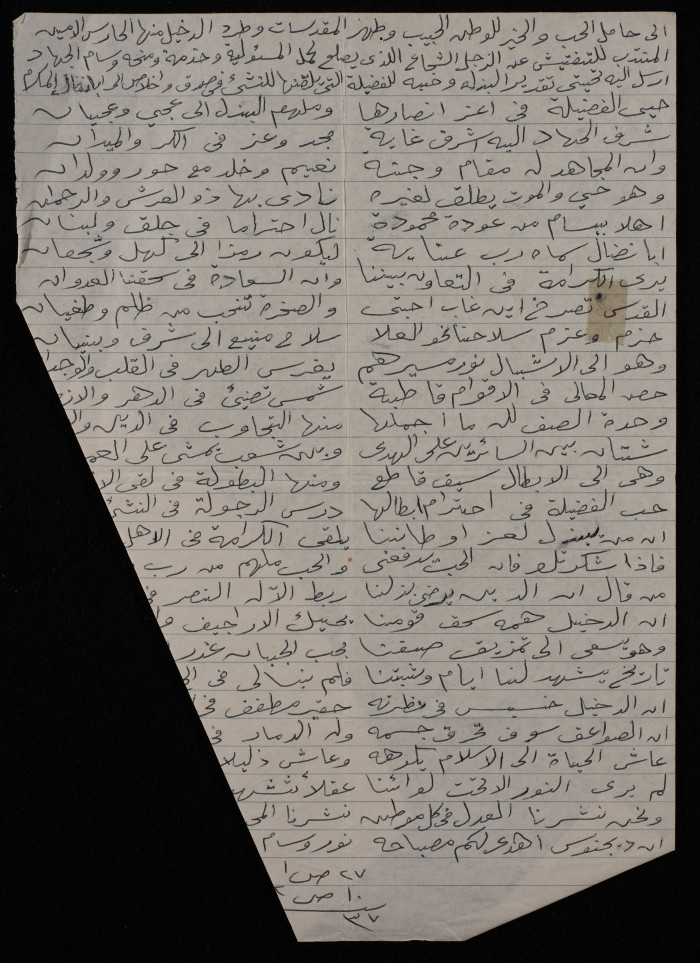 الى حامل الحب والخير للوطن الحبيب وطهر المقدسات وطرد الدخيل منها الحارس الامين
المنتدب للتفتيش عن الرجل الشجاع الذى يصلح لحمل المسئولية وخدمة ومنحه وسام الجهاد
ارسل اليه تحيتى تقدير البذله وحبه للفضيلة التى يلقنها للنشئ فى صدق واخلاص
حيى الفضيلة فى اعز انصارها وملهم البذل الى عجمي وعجيان
شرف الجهاد اليه اشرف غاية مجد وعز فى الكر والميدان
وان المجاهد له مقام وجنة نعيم وخلد مع حور وولدان
وهو حي والموت يطلق لغيره نادى بها ذو العرش والرحمن
اهلا ببسام من عودة محمودة نال احتراما فى جلق ولبنان
ايا نضال سماه رب عناية ليكون رمزا الى كهل وشجعان
يرى الكرامة فى التعاون بيننا وان السعادة فى سحقنا العدوان
القدس تصرخ اين غاب احبتى والصخرة تنحب من ظلم وطغيان
حزم وعزم سلاحنا نحو العلا سلاح منيع الى شرف وبنيان
وهو الى الاشبال نور مسيرهم يغرس الطهر فى القلب
حصد المعالى فى الاقوام قاطبة شمس تضيئ فى الدهر
وحدة الصف لله ما اجملها منها التجاوب فى الدين
شتان بين السائرين على الهدى وبين شعب يمشى على
وهى الى الابطال سيف قاطع ومنها البطولة فى لقى
حب الفضيلة فى احترام ابطالها درس الرجولة فى
ان من يبذل لعز اوطاننا يلقى الكرامة فى
فاذا شكرتك فان الحب يدفعنى والحب ملهم من رب
من قال ان الدين يرضى بذلنا ربط الذله النصر
ان الدخيل همه سحق قومنا يحيك الاراجيف
وهو يسعى الى تمزيق صفنا يحب الجبان غدر
تاريخ يشهد لنا ايام وشبتنا فلم نبالى فى
ان الدخيل خسيس فى نظرته حقير مطفف
ان الصواعق سوف تحرق جسمه وله الدمار فى
عاش الحياة الى الاسلام يكرهه وعاش ذليلا
لم يرى النور الا تحت لوائنا عقلا
ونحن نشرنا العدل فى كل موطن نشرنا
ان دبجنوس اهدى لكم مصباحه نور وسام
٢٧ ص ١
١٠ ص
٣٧